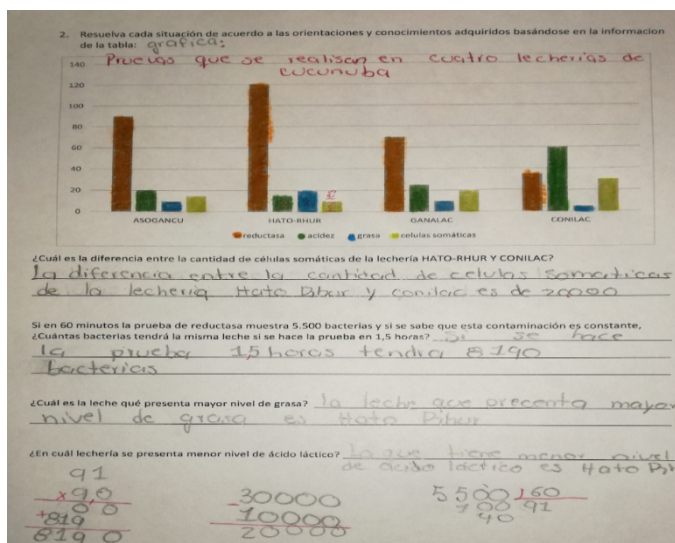 2. Resuelva cada situación de acuerdo a las orientaciones y conocimientos adquiridos basándose en la informacion
de la tabla: grafica:
Pruevas que se realisan en cuatro lecherias de
cucunuba
140
120
100
80
60
40
20
0
ASOGANCU HATO-RHUR GANALAC CONILAC
reductasa acidez grasa celulas somáticas
¿Cuál es la diferencia entre la cantidad de células somáticas de la lechería HATO-RHUR Y CONILAC?
la diferencia entre la cantidad de celulas somaticas
de la lecheria Hato Rhur y conilac es de 20000
Si en 60 minutos la prueba de reductasa muestra 5.500 bacterias y si se sabe que esta contaminación es constante,
¿Cuántas bacterias tendrá la misma leche si se hace la prueba en 1,5 horas? Si se hace
la prueba 1,5 horas tendra 8190
bacterias
¿Cuál es la leche qué presenta mayor nivel de grasa? la leche que precenta mayor
nivel de grasa es Hato Rhur
¿En cuál lechería se presenta menor nivel de ácido láctico? La que tiene menor nivel
de acido lactico es Hato
91
x 9,0
00
+819
8190
30000
-10000
20000
5500 60
100 91
40